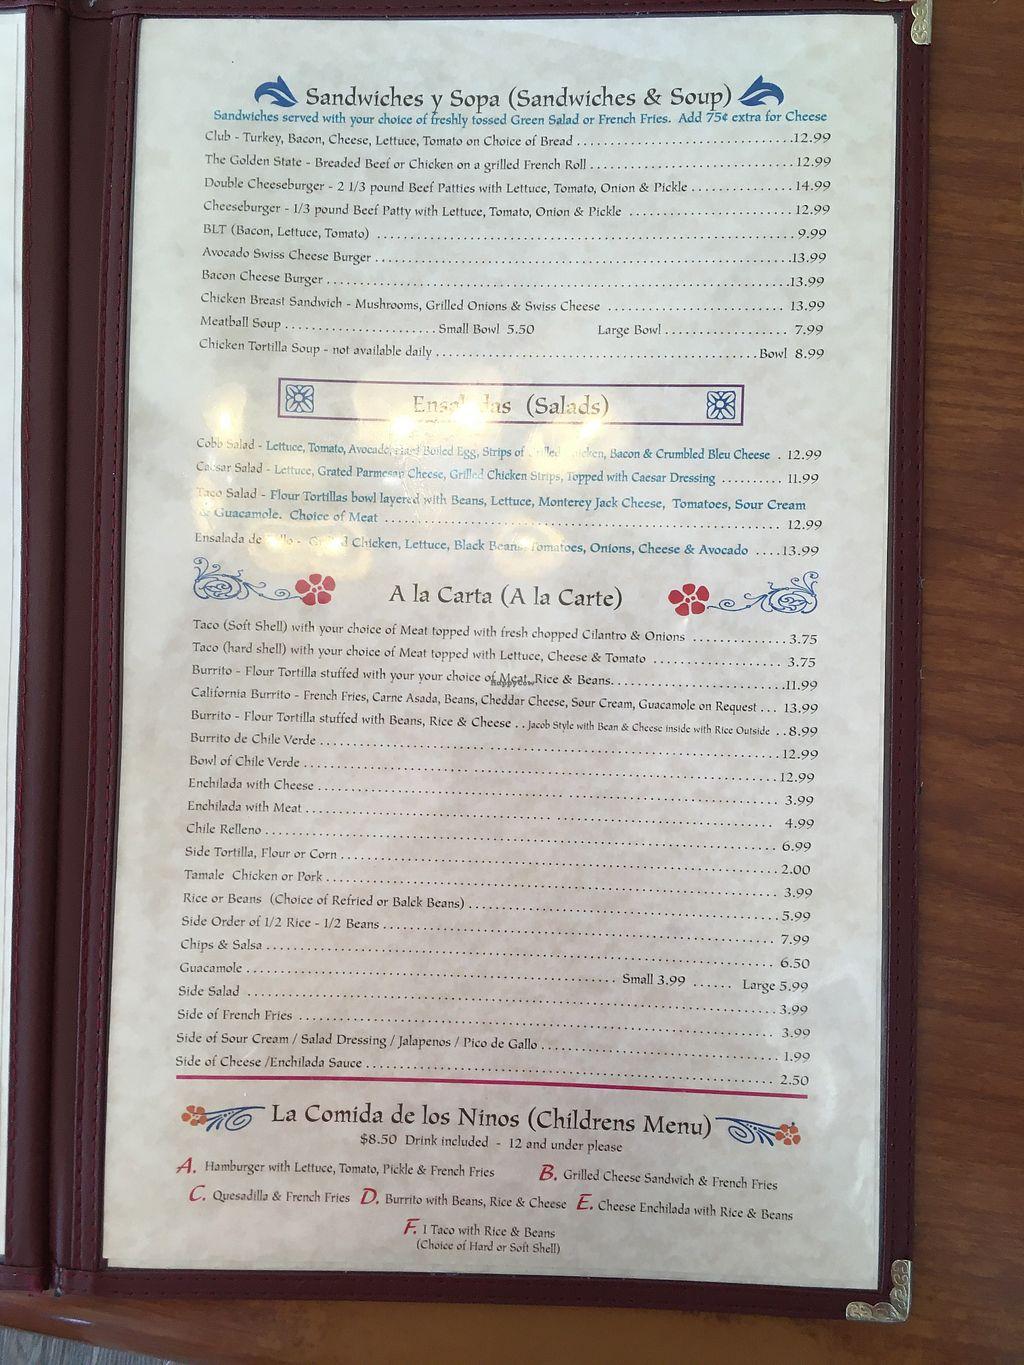 Sandwiches y Sopa (Sandwiches & Soup)
Sandwiches served with your choice of freshly tossed Green Salad or French Fries. Add 75¢ extra for Cheese
Club - Turkey, Bacon, Cheese, Lettuce, Tomato on Choice of Bread ..........12.99
The Golden State - Breaded Beef or Chicken on a grilled French Roll ..........12.99
Double Cheeseburger - 2 1/3 pound Beef Patties with Lettuce, Tomato, Onion & Pickle ..........14.99
Cheeseburger - 1/3 pound Beef Patty with Lettuce, Tomato, Onion & Pickle ..........12.99
BLT (Bacon, Lettuce, Tomato) ..........9.99
Avocado Swiss Cheese Burger ..........13.99
Bacon Cheese Burger ..........13.99
Chicken Breast Sandwich - Mushrooms, Grilled Onions & Swiss Cheese .......... 13.99
Meatball Soup ..........Small Bowl 5.50 Large Bowl .......... 7.99
Chicken Tortilla Soup - not available daily ..........Bowl 8.99
(Salads)
Cobb Salad - Lettuce, Tomato, Avocado, Hard Boiled Egg, Strips of Grilled Chicken, Bacon & Crumbled Bleu Cheese . 12.99
Caesar Salad - Lettuce, Grated Parmesan Cheese, Grilled Chicken Strips, Topped with Caesar Dressing .......... 11.99
Taco Salad - Flour Tortillas bowl layered with Beans, Lettuce, Monterey Jack Cheese, Tomatoes, Sour Cream
& Guacamole. Choice of Meat .......... 12.99
Ensalada de - Chicken, Lettuce, Black Beans, Tomatoes, Onions, Cheese & Avocado ....13.99
A la Carta (A la Carte)
Taco (Soft Shell) with your choice of Meat topped with fresh chopped Cilantro & Onions ..........3.75
Taco (hard shell) with your choice of Meat topped with Lettuce, Cheese & Tomato .......... 3.75
Burrito - Flour Tortilla stuffed with your your choice of Meat, Rice & Beans..........11.99
HappyCow
California Burrito - French Fries, Carne Asada, Beans, Cheddar Cheese, Sour Cream, Guacamole on Request ... 13.99
Burrito - Flour Tortilla stuffed with Beans, Rice & Cheese . . Jacob Style with Bean & Cheese inside with Rice Outside . . 8.99
Burrito de Chile Verde ..........12.99
Bowl of Chile Verde ..........12.99
Enchilada with Cheese .......... 3.99
Enchilada with Meat .......... 4.99
Chile Relleno .......... 6.99
Side Tortilla, Flour or Corn ..........2.00
Tamale Chicken or Pork .......... 3.99
Rice or Beans (Choice of Refried or Balck Beans) ..........5.99
Side Order of 1/2 Rice - 1/2 Beans .......... 7.99
Chips & Salsa .......... 6.50
Guacamole .......... Small 3.99 ...... Large 5.99
Side Salad ..........3.99
Side of French Fries .......... 3.99
Side of Sour Cream / Salad Dressing / Jalapenos / Pico de Gallo .......... 1.99
Side of Cheese /Enchilada Sauce .......... 2.50
La Comida de los Ninos (Childrens Menu)
$8.50 Drink included - 12 and under please
A. Hamburger with Lettuce, Tomato, Pickle & French Fries B. Grilled Cheese Sandwich & French Fries
C. Quesadilla & French Fries D. Burrito with Beans, Rice & Cheese E. Cheese Enchilada with Rice & Beans
F. 1 Taco with Rice & Beans
(Choice of Hard or Soft Shell)